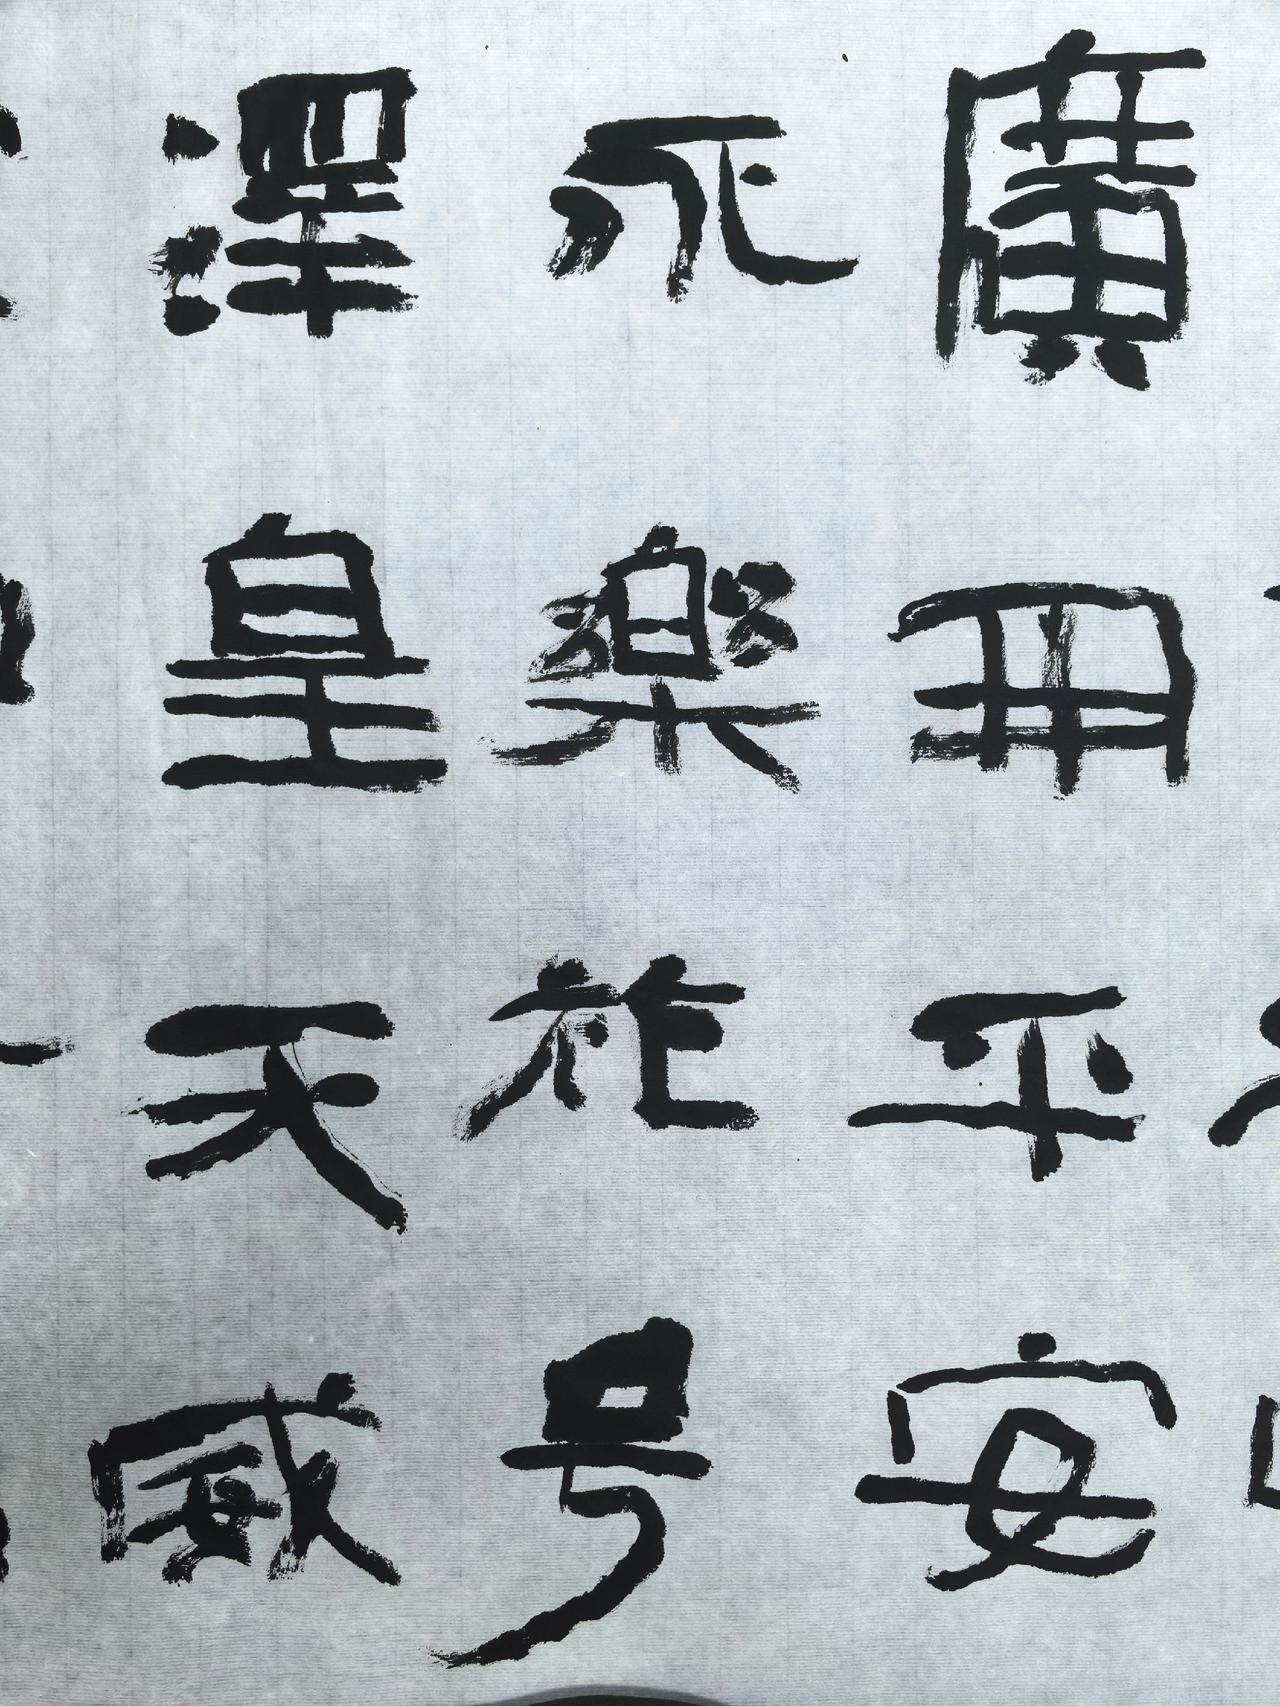 廣冊平安
永樂於号
澤皇天威